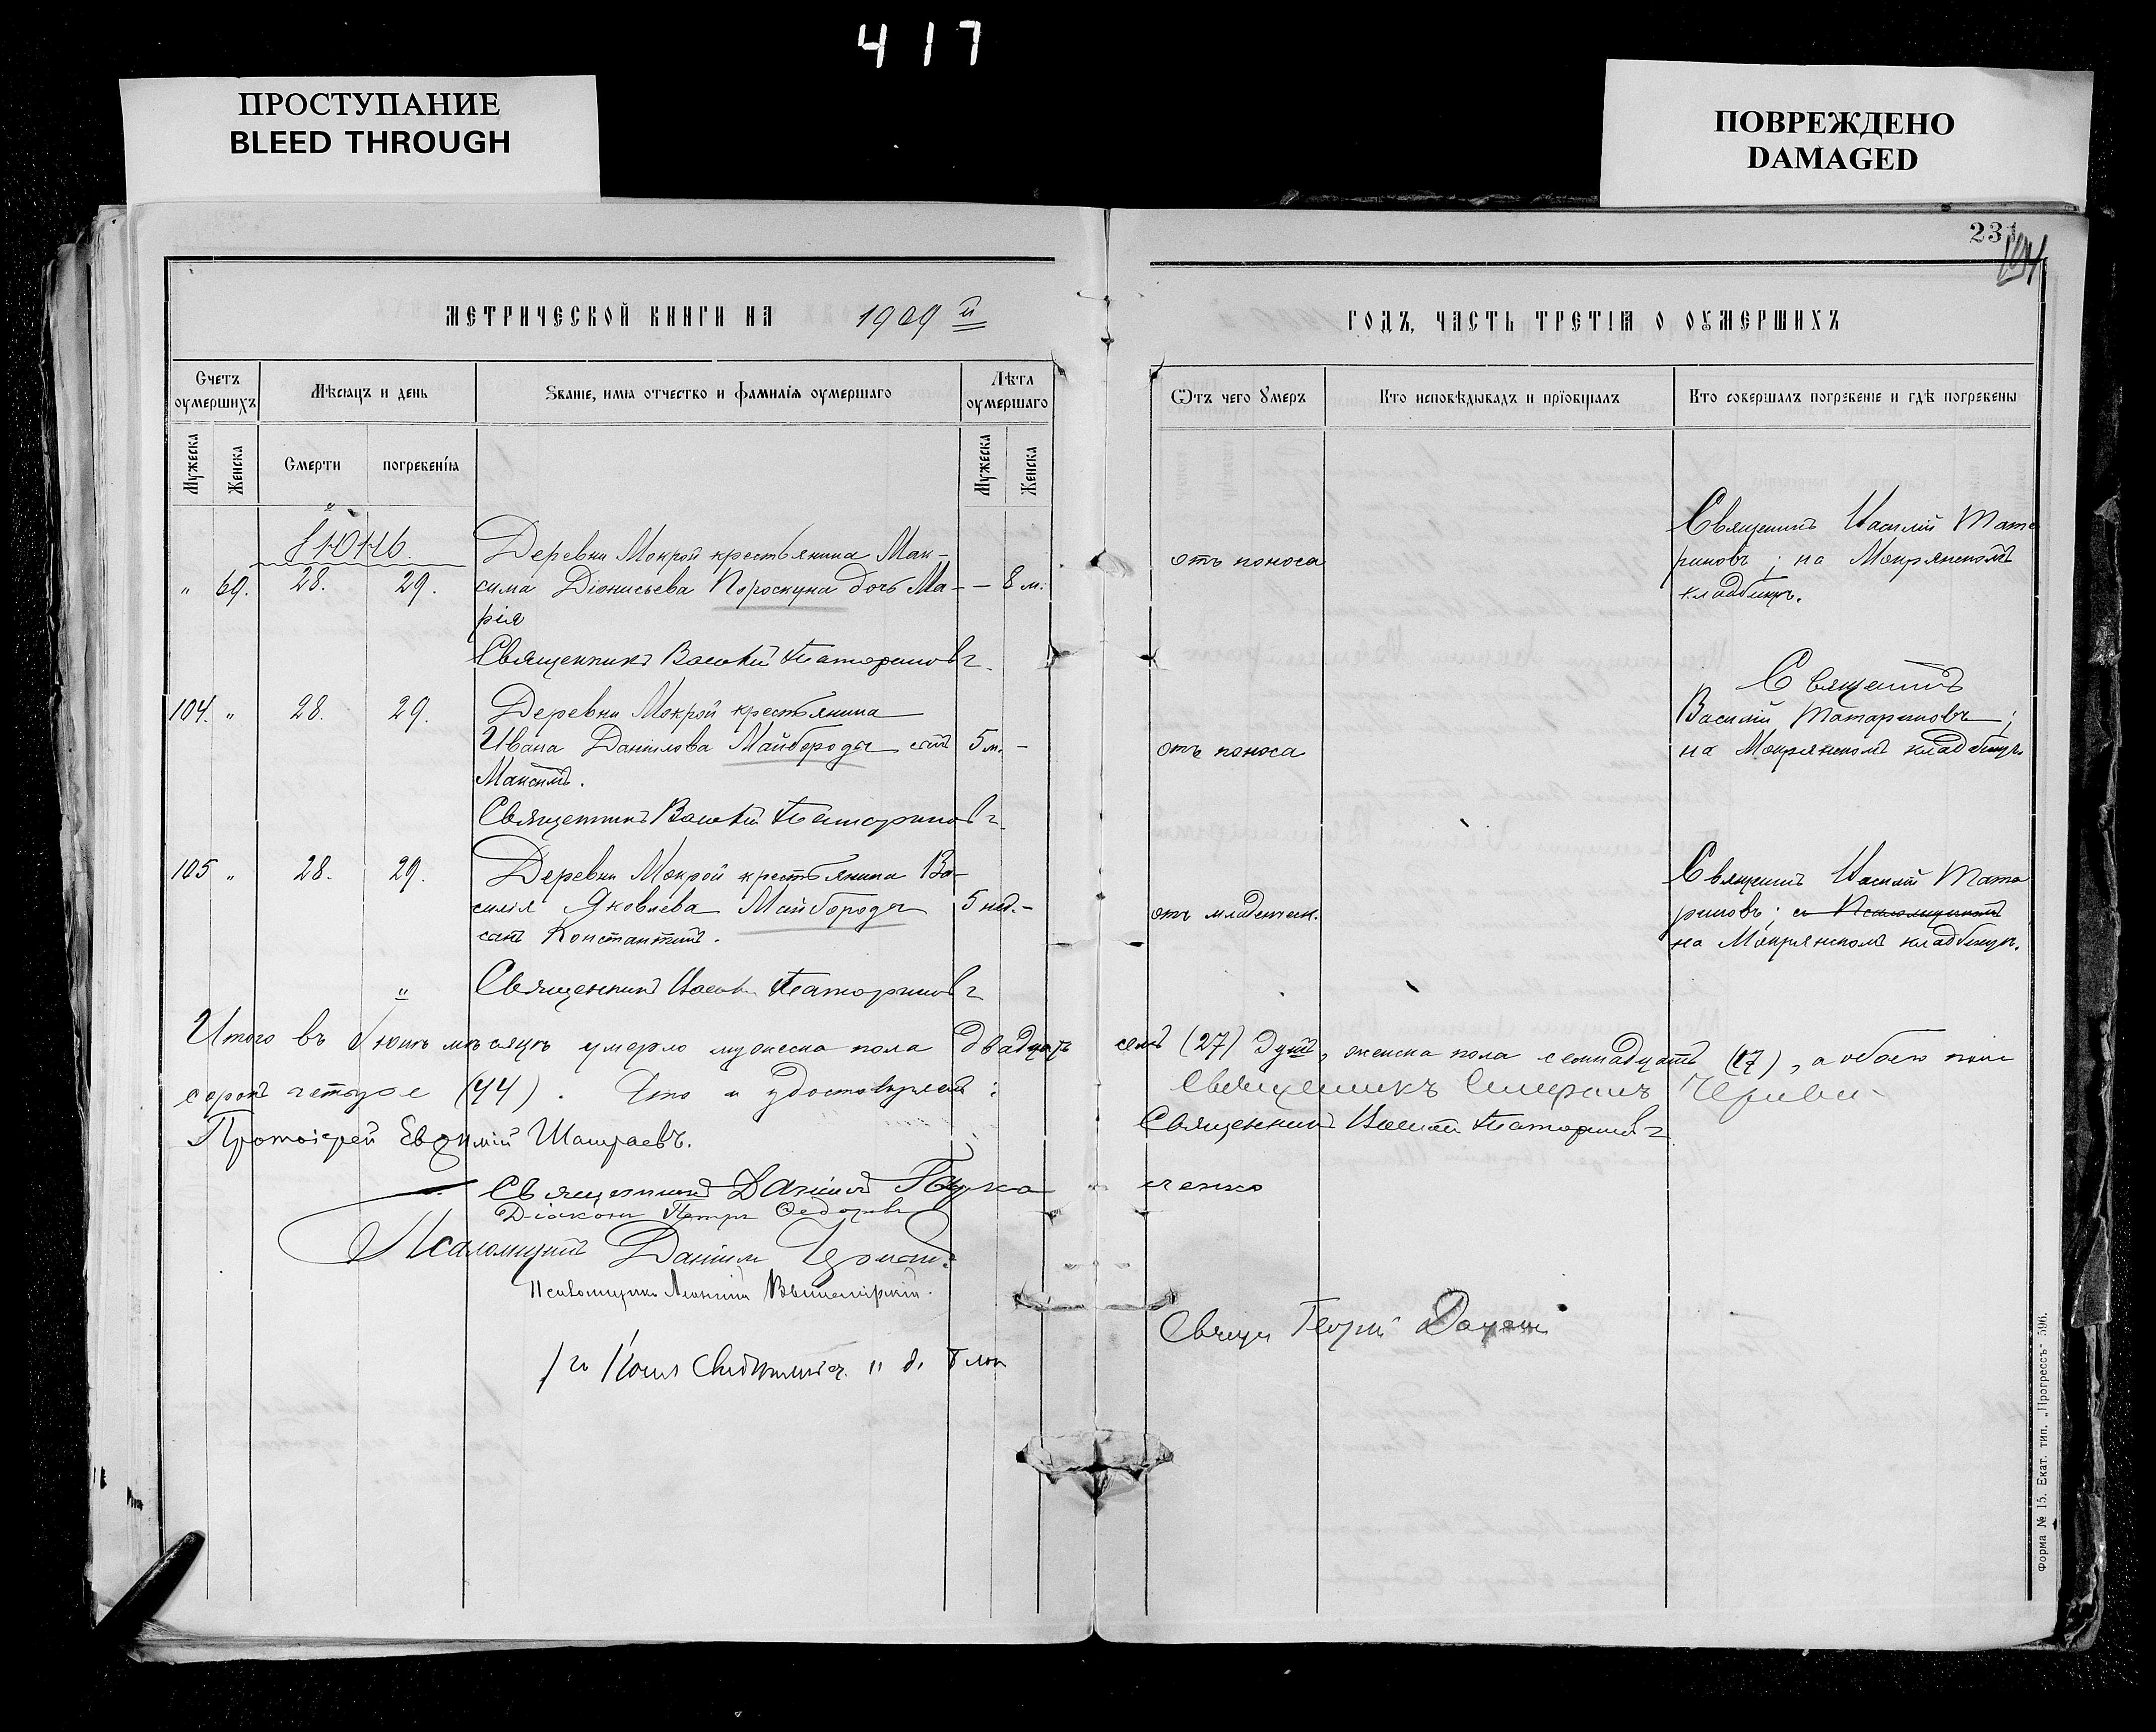 417
ПРОСТУПАНИЕ
BLEED THROUGH
ПОВРЕЖДЕНО
DAMAGED
231
МЕТРИЧЕСКОЙ КНИГИ НА 1909 й
Счетъ оумершихъ
Мѣсяцъ и день
Званіе, имя отчество и фамилія оумершаго
Лѣта оумершаго
Мужеска
Женска
Смерти
погребенія
Мужеска
Женска
Іюнь.
Деревни Мокрой крестьянина Мак-
„ 69. 28. 29. сима Діонисьева Пороскуна дочь Ма- – 8 м.
рія
Священникъ Василій Татариновъ.
104. „ 28. 29. Деревни Мокрой крестьянина
Ивана Данилова Майбороды сынъ 5 м. –
Максимъ.
Священникъ Василій Татариновъ.
105 „ 28. 29. Деревни Мокрой крестьянина Ва-
силія Яковлева Майбороды 5 нед. –
сынъ Константинъ.
Священникъ Василій Татариновъ
Итого въ Іюнѣ мѣсяцѣ умерло мужеска пола двадцать
сорокъ четыре (44). Что и удостовѣряемъ:
Протоіерей Евфимій Шамраевъ.
Священникъ Даніилъ
Діаконъ Петръ Федоровъ
Псаломщикъ Даніилъ
Псаломщикъ
ГОДЪ, ЧАСТЬ ТРЕТІЯ О ОУМЕРШИХЪ
Ѿтъ чего Умеръ
Кто исповѣдывадъ и прїобщалъ
Кто совершалъ погребеніе и гдѣ погребены
отъ поноса
Священникъ Василій Тата
риновъ; на Мокрянскомъ
кладбищѣ.
отъ поноса
Священникъ
Василій Татариновъ;
на Мокрянскомъ кладбищѣ.
отъ младенческ.
Священникъ Василій Тата
риновъ; съ Псаломщикомъ
на Мокрянскомъ кладбищѣ.
семь (27) душъ, женска пола семнадцать (17), а обоего пола
Священникъ
Священникъ Василій Татариновъ
ченко
Георгій
Форма № 15. Екат. тип. „Прогрессъ" 596.